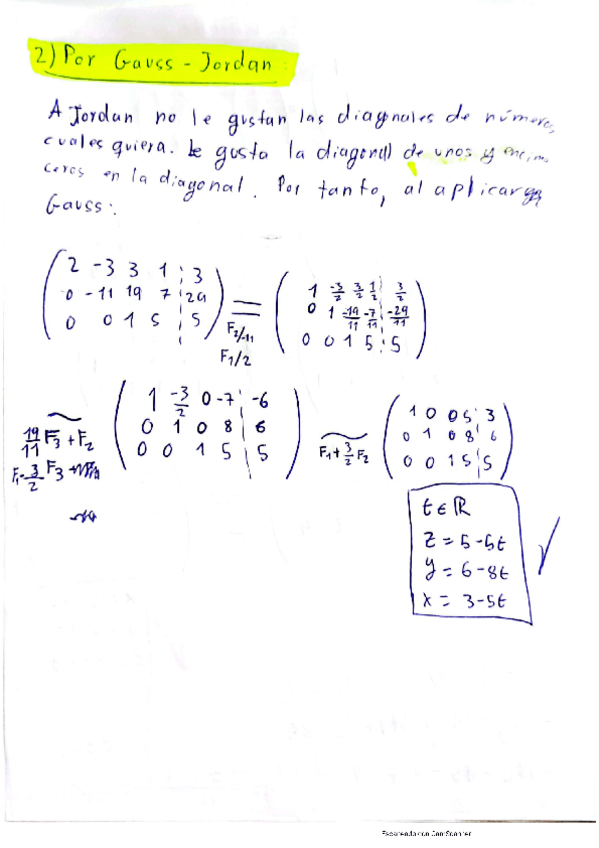 2) Por Gauss - Jordan:
A Jordan no le gustan las diagonales de números
cuales quiera. Le gusta la diagonal de unos y encima
ceros en la diagonal. Por tanto, al aplicar
Gauss:
2 -3 3 1 3
0 -11 19 7 29
0 0 1 5 5
F2/-11
F1/2
1 -3/2 3/2 1/2 3/2
0 1 -19/11 -7/11 -29/11
0 0 1 5 5
19/11 F3 + F2
F1 - 3/2 F3
1 -3/2 0 -7 -6
0 1 0 8 6
0 0 1 5 5
F1 + 3/2 F2
1 0 0 5 3
0 1 0 8 6
0 0 1 5 5
t ∈ ℝ
z = 5 - 5t
y = 6 - 8t
x = 3 - 5t
Escaneado con CamScanner